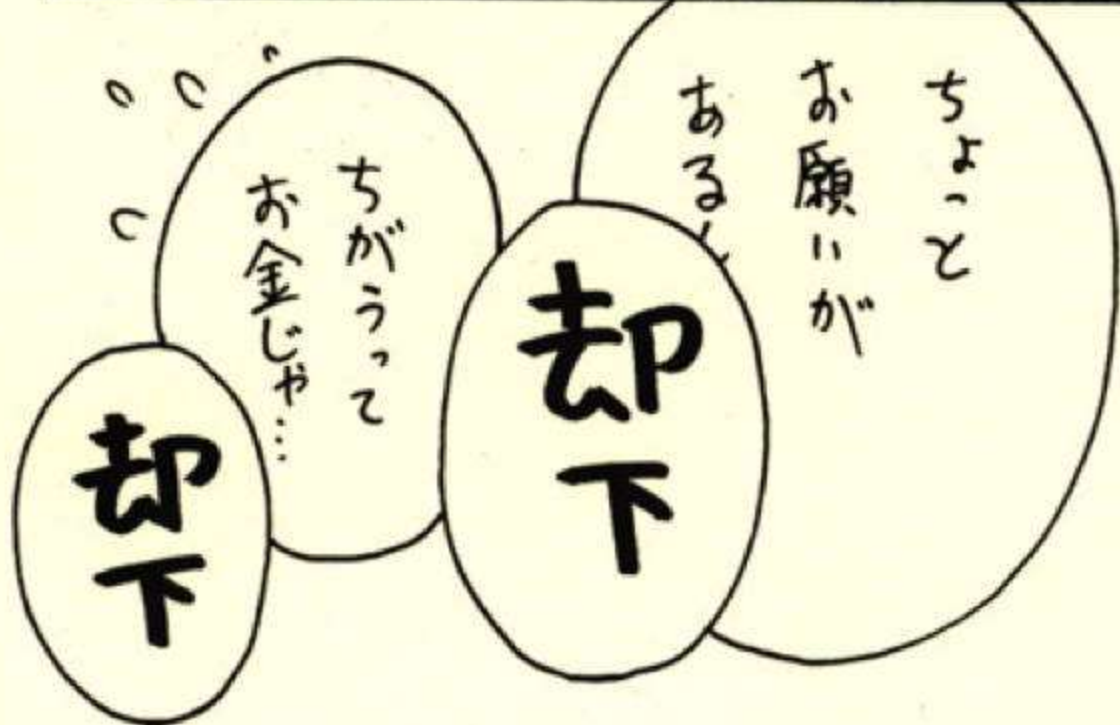 ちょっと
お願いが
ある
却下
ちがうって
お金じゃ…
却下